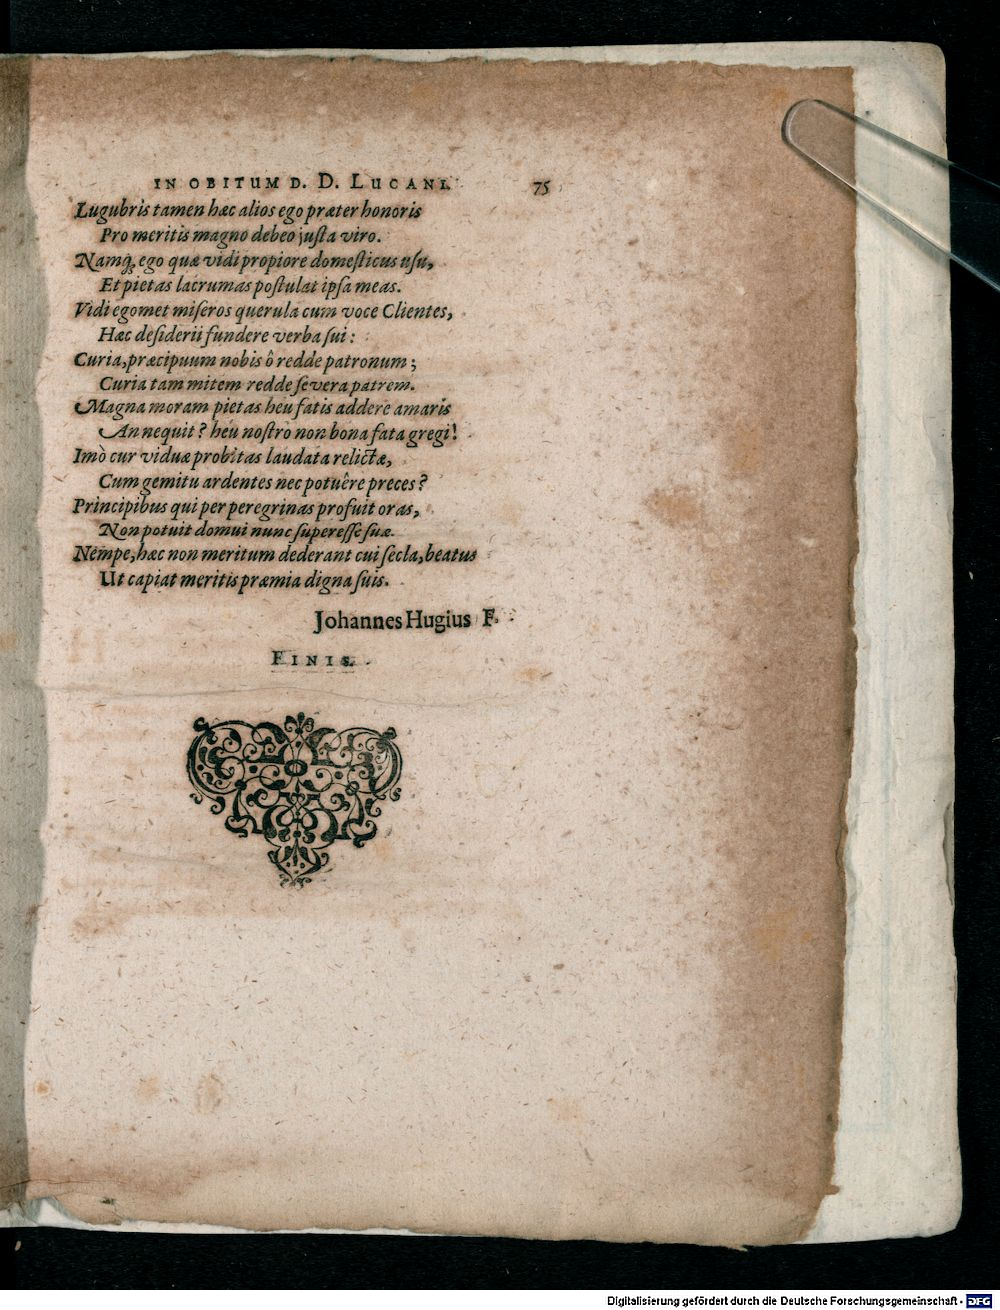 IN OBITUM D. D. LUCANI. 75
Lugubris tamen hæc alios ego præter honoris
Pro meritis magno debeo juſta viro.
Namq́; ego quæ vidi propiore domeſticus uſu,
Et pietas lacrumas poſtulat ipſa meas.
Vidi egomet miſeros querula cum voce Clientes,
Hæc deſiderii fundere verba ſui:
Curia, præcipuum nobis ô redde patronum;
Curia tam mitem redde ſevera patrem.
Magna moram pietas heu fatis addere amaris
An nequit? heu noſtro non bona fata gregi!
Imò cur viduæ probitas laudata relictæ,
Cum gemitu ardentes nec potuêre preces?
Principibus qui per peregrinas profuit oras,
Non potuit domui nunc ſupereſſe ſuæ.
Nempe, hæc non meritum dederant cui ſecla, beatus
Ut capiat meritis præmia digna ſuis.
Johannes Hugius F.
FINIS.
Digitalisierung gefördert durch die Deutsche Forschungsgemeinschaft - DFG